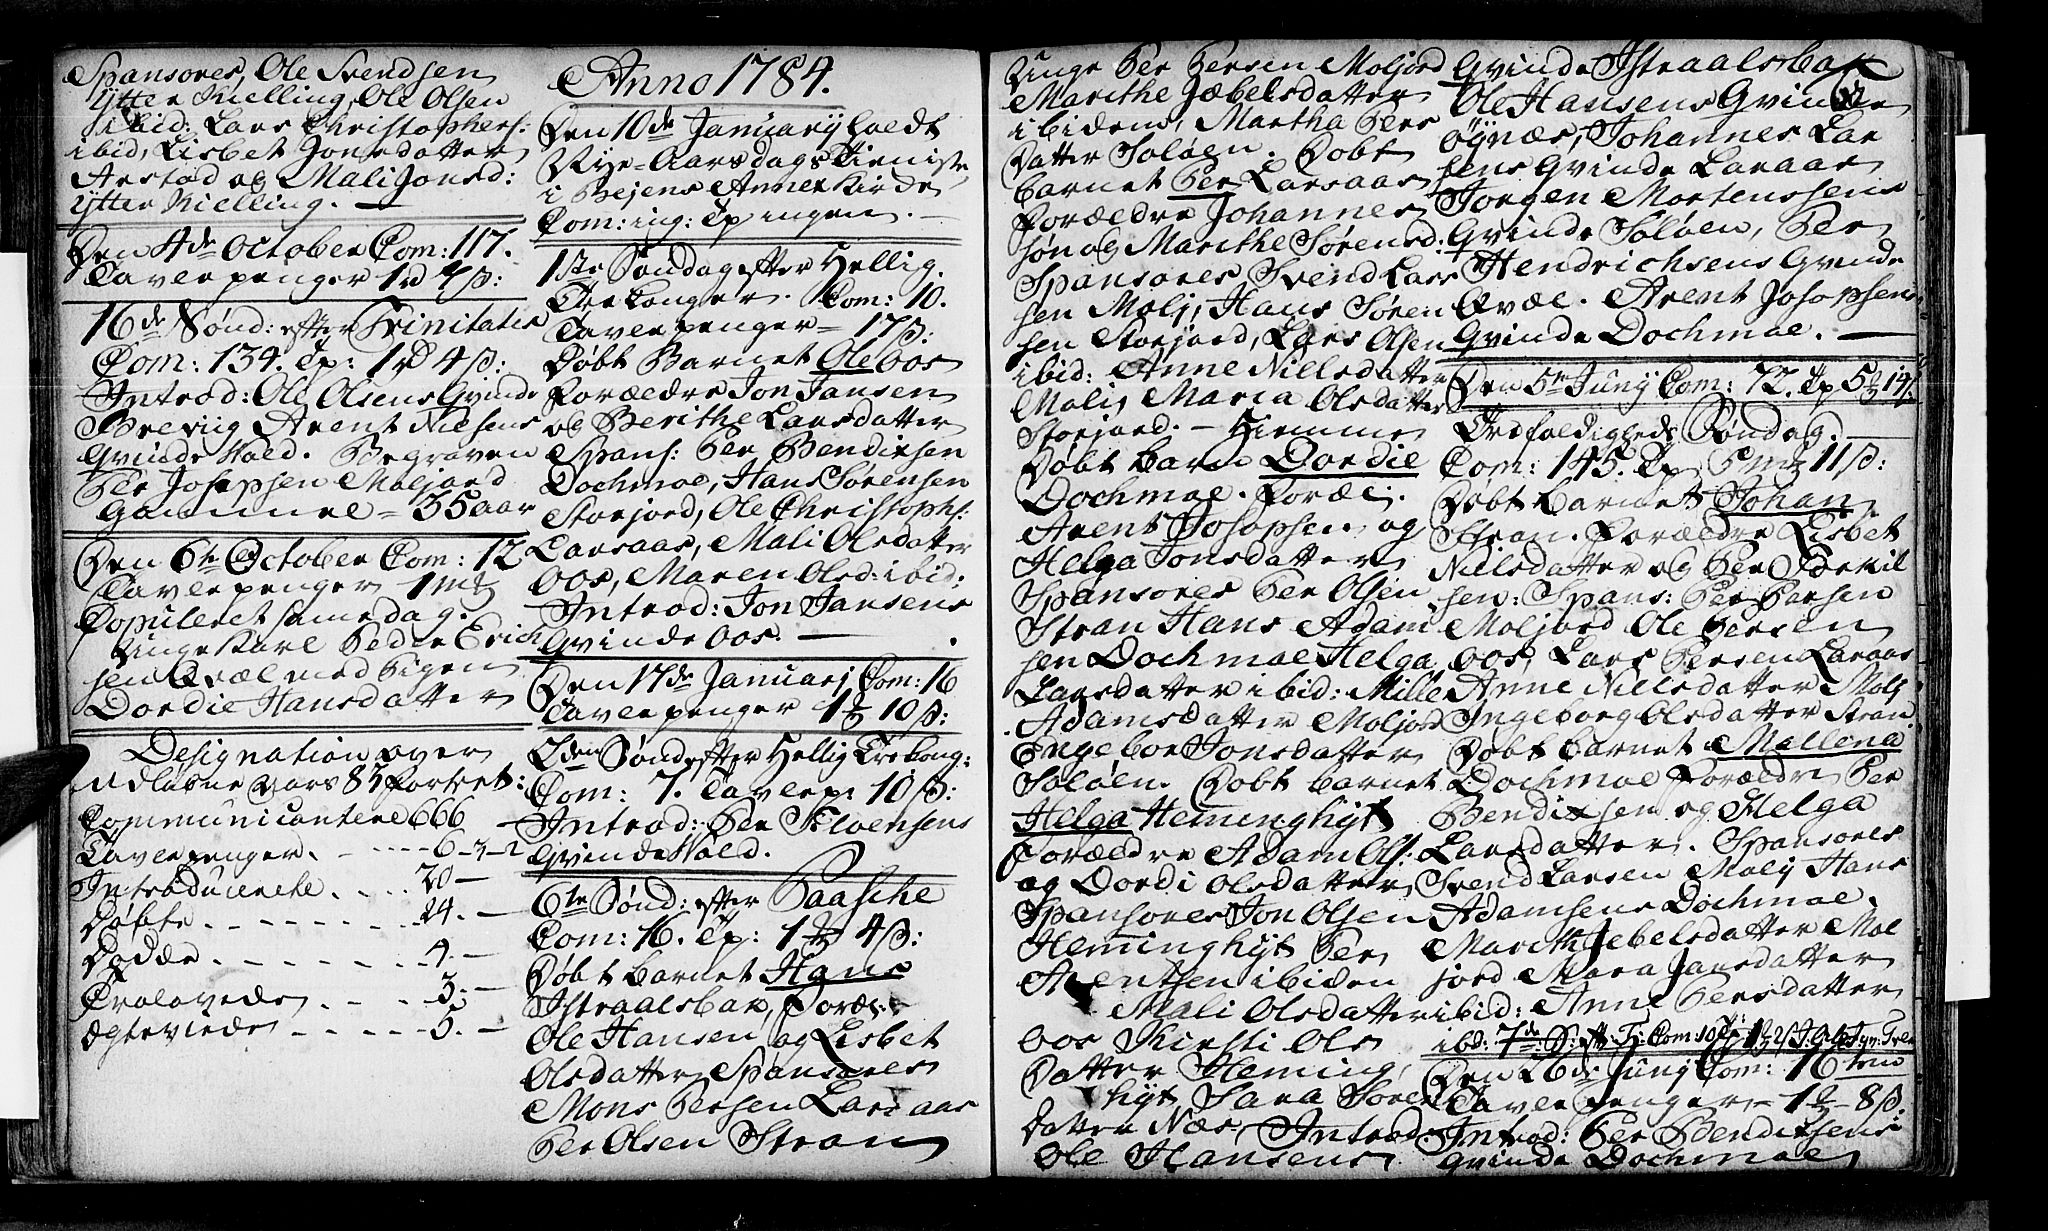 Spansores, Ole Svendsen
Ytter Kielling, Ole Olsen
ibid: Lars Christophers:
ibid, Lisbet Jonsdatter
Arstad og Mali Jonsd:
Ytter Kielling. —
Den 4de October Com: 117.
Tavlepenger 1rd 4ß:
16de Sønd: efter Trinitatis
Com: 134. Tp: 1rd 4ß:
Introd: Ole Olsens Qvinde
Brevig Arent Nielsens
Qvinde Vold. Begraven
Per Josephsen Moljord
Gammel = 35 aar
Den 6te October Com: 12
Tavlepenger 1 mk
Copuleret samme dag.
Unge Karl Peder Erich
sen Qvæl med Pigen
Dordie Hansdatter
Designation over
Udlagne Aars 83 Forret:
Communicantere 666
Tavlepenger. - - - - 6-3-2
Introducerede . . . . 20 —
Døbte - - - - - - 24. —
Dødde - - - - - - 4. —
Trolovede . - - - 3. —
Ægteviede - - - - - 3. —
Anno 1784.
Den 10de January holdt
Nye-Aarsdags Tieniste
i Bejens Annex Kirke
Com: ing: Tp ingen. —
1ste Søndag efter Hellig.
Tre Konger. Com: 10.
Tavlepenger = 17ß:
Døbt Barnet Ole Oos
Forældre Jon Jansen
og Berithe Larsdatter
Spans: Per Bendixsen
Dochmoe, Hans Sørensen
Storjord, Ole Christophs:
Larsaas, Mali Olsdatter
Oos, Maren Olsd: ibid:
Introd: Jon Jansens
Qvinde Oos. —
Den 17de Januarj Com: 16
Tavlepenger 1 mk 10ß:
2den Sønd efter Hellig Trekong:
Com: 7. Tavlep: 10ß:
Introd: Per
Qvinde Vold.
6te Sønd: efter Paasche
Com: 16. Tp: 1 mk 4ß:
Døbt Barnet Hans
Istraalsbak, Foræ:
Ole Hansen og Lisbet
Olsdatter Spansores
Mons Persen Larsaas
Per Olsen Stran
Unge Per Persen Moljord
Marithe Jæbelsdatter
ibidem, Martha Pers
Datter Soløen. Døbt
Barnet Per Larsaas
Forældre Johannes
søn og Marithe Sørensd:
Spansores Svend Lars
sen Molj, Hans Søren
sen Storjord, Lars Olsen
ibid: Anne Nielsdatter
Molj Maria Olsdatter
Storjord. — Hiemme
Døbt Barn Dordie
Dochmoe. Foræ:
Arent Josephsen og
Helga Jonsdatter
Spansores Per Olsen
Stran Hans Adam
sen Dochmoe Helga
Larsdatter ibid: Mille
Adamsdatter Moljord
Ingebor Jonsdatter
Soløen. Døbt Barnet
Helga Heminghyt
Forældre Adam Ols:
og Dordi Olsdatter
Spansores Jon Olsen
Heminghyt Per
Arentsen ibiden
Mali Olsdatter
Oos Kirsti Ols
Datter Heming
hyt Sara Sørens
Datter Næs, Introd:
Ole Hansens
Qvinde Istraalsbak
Ole Hansens Qvinde
øynæs, Johannes Lar
sens Qvinde Laraas
Jørgen Mortenssens
Qvinde Soløen, Per
Hendrichsens Qvinde
Qvæl. Arent Josephsens
Qvinde Dochmoe. —
Den 5te Juny Com: 72. Tp 5 mk 14ß
Trefoldigheds Søndag.
Com: 145. Tp 5 mk 11ß:
Døbt Barnet Johan
Stran. Forældre Lisbet
Nielsdatter og Per Edekil
sen: Spans: Per Persen
Moljord Ole Persen
Oos, Lars Persen Laraas
Anne Nielsdatter Molj
Ingeborg Olsdatter Stran
Døbt Barnet Mallena
Dochmoe Forældre Per
Bendixsen og Helga
Larsdatter. Spansores
Svend Larsen Molj Hans
Adamsens Dochmoe.
Marith Jebelsdatter Mol
jord Mara Jansdatter
ibid: Anne Persdatter
ibd: 7de S: eft: Tr: Com: 10
Den 26de Juny Com: 16ten
Tavlepenger - 1 mk - 8ß.
Introd: Per Bendixsens
Qvinde Dochmoe